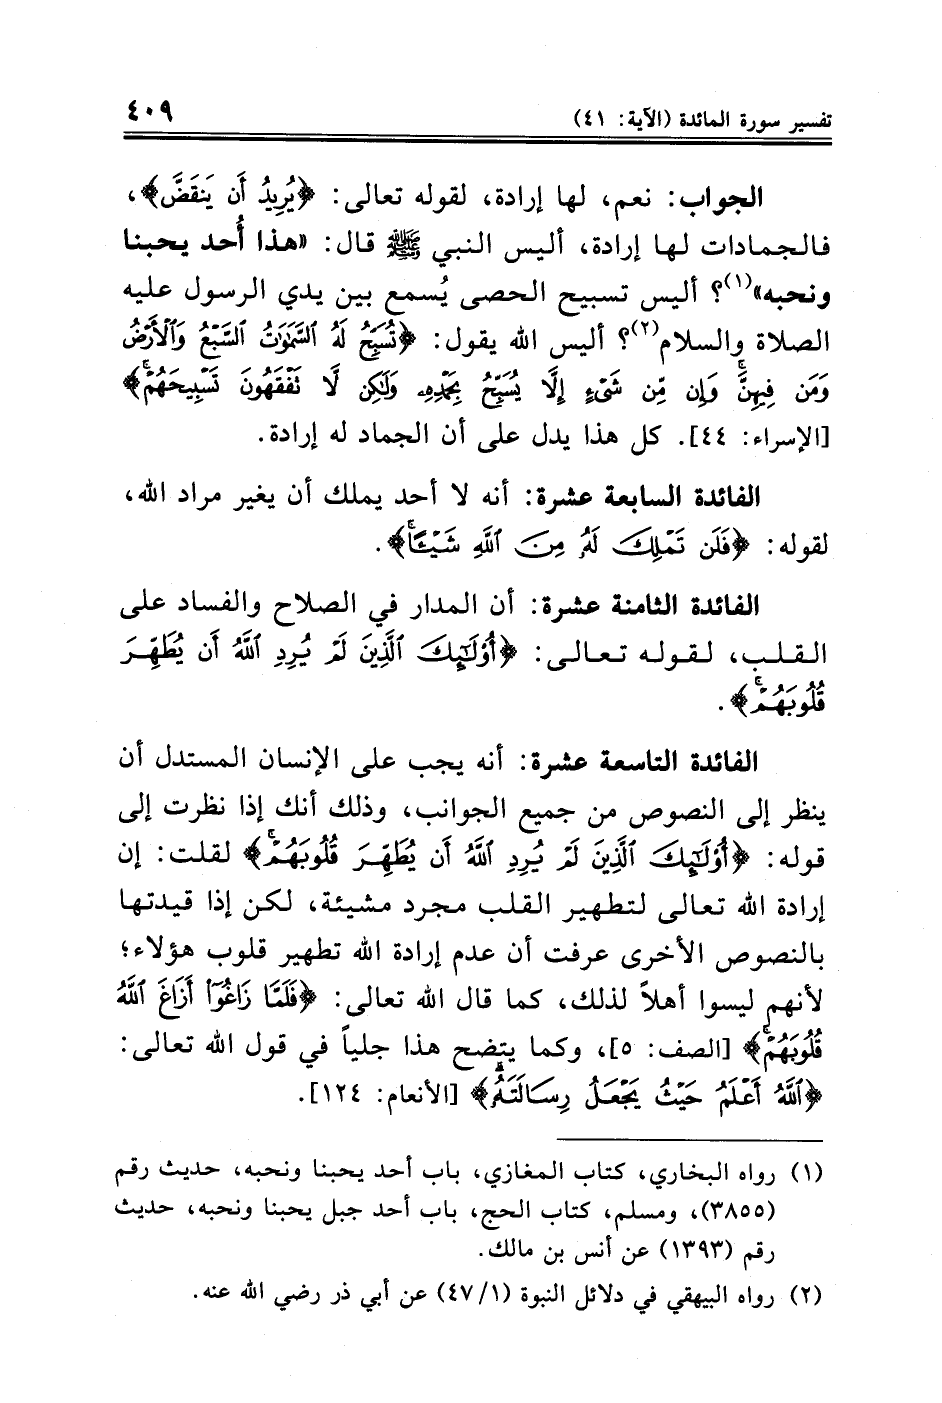 تفسير سورة المائدة (الآية: ٤١)
٤٠٩
الجواب: نعم، لها إرادة، لقوله تعالى: ﴿يُرِيدُ أَن يَنقَضَّ﴾،
فالجمادات لها إرادة، أليس النبي ﷺ قال: «هذا أُحد يحبنا
ونحبه»(١)؟ أليس تسبيح الحصى يُسمع بين يدي الرسول عليه
الصلاة والسلام(٢)؟ أليس الله يقول: ﴿تُسَبِّحُ لَهُ ٱلسَّمَٰوَٰتُ ٱلسَّبْعُ وَٱلْأَرْضُ
وَمَن فِيهِنَّ ۚ وَإِن مِّن شَىْءٍ إِلَّا يُسَبِّحُ بِحَمْدِهِۦ وَلَٰكِن لَّا تَفْقَهُونَ تَسْبِيحَهُمْ ۚ﴾
[الإسراء: ٤٤]. كل هذا يدل على أن الجماد له إرادة.
الفائدة السابعة عشرة: أنه لا أحد يملك أن يغير مراد الله،
لقوله: ﴿فَلَن تَمْلِكَ لَهُۥ مِنَ ٱللَّهِ شَيْـًٔا ۚ﴾.
الفائدة الثامنة عشرة: أن المدار في الصلاح والفساد على
القلب، لقوله تعالى: ﴿أُو۟لَٰٓئِكَ ٱلَّذِينَ لَمْ يُرِدِ ٱللَّهُ أَن يُطَهِّرَ
قُلُوبَهُمْ ۚ﴾.
الفائدة التاسعة عشرة: أنه يجب على الإنسان المستدل أن
ينظر إلى النصوص من جميع الجوانب، وذلك أنك إذا نظرت إلى
قوله: ﴿أُو۟لَٰٓئِكَ ٱلَّذِينَ لَمْ يُرِدِ ٱللَّهُ أَن يُطَهِّرَ قُلُوبَهُمْ ۚ﴾ لقلت: إن
إرادة الله تعالى لتطهير القلب مجرد مشيئة، لكن إذا قيدتها
بالنصوص الأخرى عرفت أن عدم إرادة الله تطهير قلوب هؤلاء؛
لأنهم ليسوا أهلاً لذلك، كما قال الله تعالى: ﴿فَلَمَّا زَاغُوٓا۟ أَزَاغَ ٱللَّهُ
قُلُوبَهُمْ ۚ﴾ [الصف: ٥]، وكما يتضح هذا جلياً في قول الله تعالى:
﴿ٱللَّهُ أَعْلَمُ حَيْثُ يَجْعَلُ رِسَالَتَهُۥ ۗ﴾ [الأنعام: ١٢٤].
(١) رواه البخاري، كتاب المغازي، باب أحد يحبنا ونحبه، حديث رقم
(٣٨٥٥)، ومسلم، كتاب الحج، باب أحد جبل يحبنا ونحبه، حديث
رقم (١٣٩٣) عن أنس بن مالك.
(٢) رواه البيهقي في دلائل النبوة (٤٧/١) عن أبي ذر رضي الله عنه.